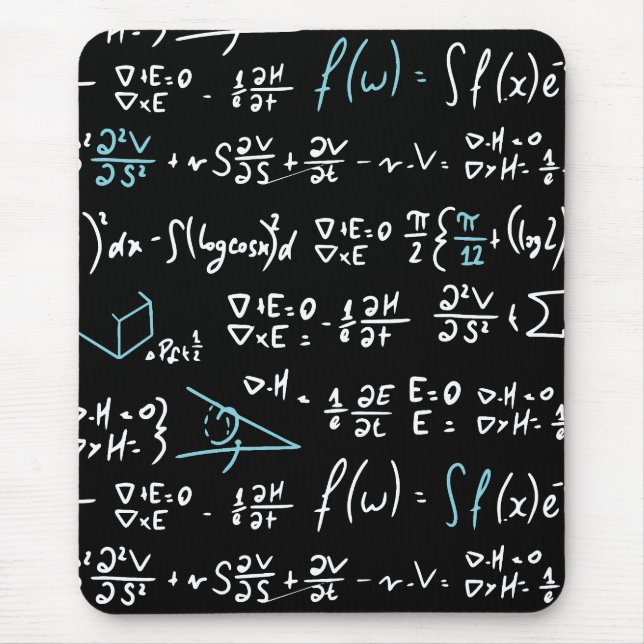 ∇+E=0 - 1/e ∂H/∂t f(ω) = ∫f(x)e
∇×E
∂²V/∂S² + r S ∂V/∂S + ∂V/∂t - r.V = ∇.H=0
∇×H= 1/e
)²dx - ∫(logcosx)²d ∇+E=0 π/2 { π/12 + (log2)
∇×E
∇+E=0 - 1/e ∂H/∂t ∂²V/∂S² + Σ
∇×E =
1/2
∇.H = 1/e ∂E/∂t E=0 ∇.H=0
E = ∇×H=
∇.H=0 }
∇×H=
∇+E=0 - 1/e ∂H/∂t f(ω) = ∫f(x)e
∇×E
∂²V/∂S² + r S ∂V/∂S + ∂V/∂t - r.V = ∇.H=0
∇×H= 1/e